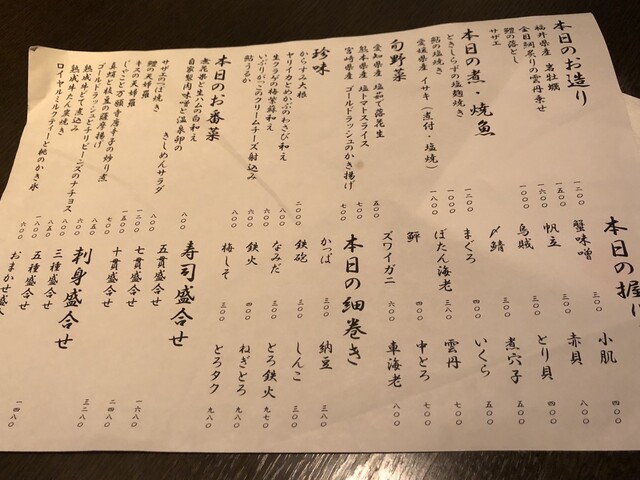 本日のお造り
福井県産 岩牡蠣 一二〇〇
金目鯛炙りの雲丹乗せ 一五〇〇
鱧の落とし
サザエ 一〇〇〇
本日の煮・焼魚
ときしらずの塩麹焼き 一二〇〇
鮎の塩焼き 一〇〇〇
愛媛県産 イサキ(煮付・塩焼) 一八〇〇
旬野菜
愛知県産 塩茹で落花生 五〇〇
熊本県産 塩トマトスライス 七〇〇
宮崎県産 ゴールドラッシュのかき揚げ 七〇〇
珍味
からすみ大根 二〇〇〇
ヤリイカとめかぶのわさび和え
生クラゲの梅紫蘇和え
いぶりがっこのクリームチーズ射込み
鮎うるか 八〇〇
本日のお番菜
無花果と生ハムの白和え
自家製肉味噌と温泉卵の
きしめんサラダ 八〇〇
サザエのつぼ焼き
鱧の天婦羅
キスの天婦羅
じゃこと万願寺唐辛子の炒り煮
真鯖と枝豆の薩摩揚げ
ゴールドラッシュとチリビーンズのナチョス
熟成牛とて煮込み
熟成牛たん炭焼き
ロイヤルミルクティーと桃のかき氷
本日の握り
蟹味噌 三〇〇
小肌 四〇〇
帆立 五〇〇
赤貝
烏賊 三〇〇
とり貝
〆鯖
煮穴子
まぐろ 四〇〇
いくら 五〇〇
ぼたん海老 三八〇
雲丹 七〇〇
鮃
中とろ 七〇〇
ズワイガニ 六〇〇
車海老 八〇〇
本日の細巻き
かっぱ 三〇〇
納豆 三八〇
鉄砲 三〇〇
しんこ 三〇〇
なみだ 三〇〇
とろ鉄火 九七〇
鉄火 七〇〇
ねぎとろ 九八〇
梅しそ 三〇〇
とろタク 九八〇
寿司盛合せ
五貫盛合せ
七貫盛合せ 一六八〇
十貫盛合せ 二四八〇
刺身盛合せ
三種盛合せ
五種盛合せ
おまかせ盛